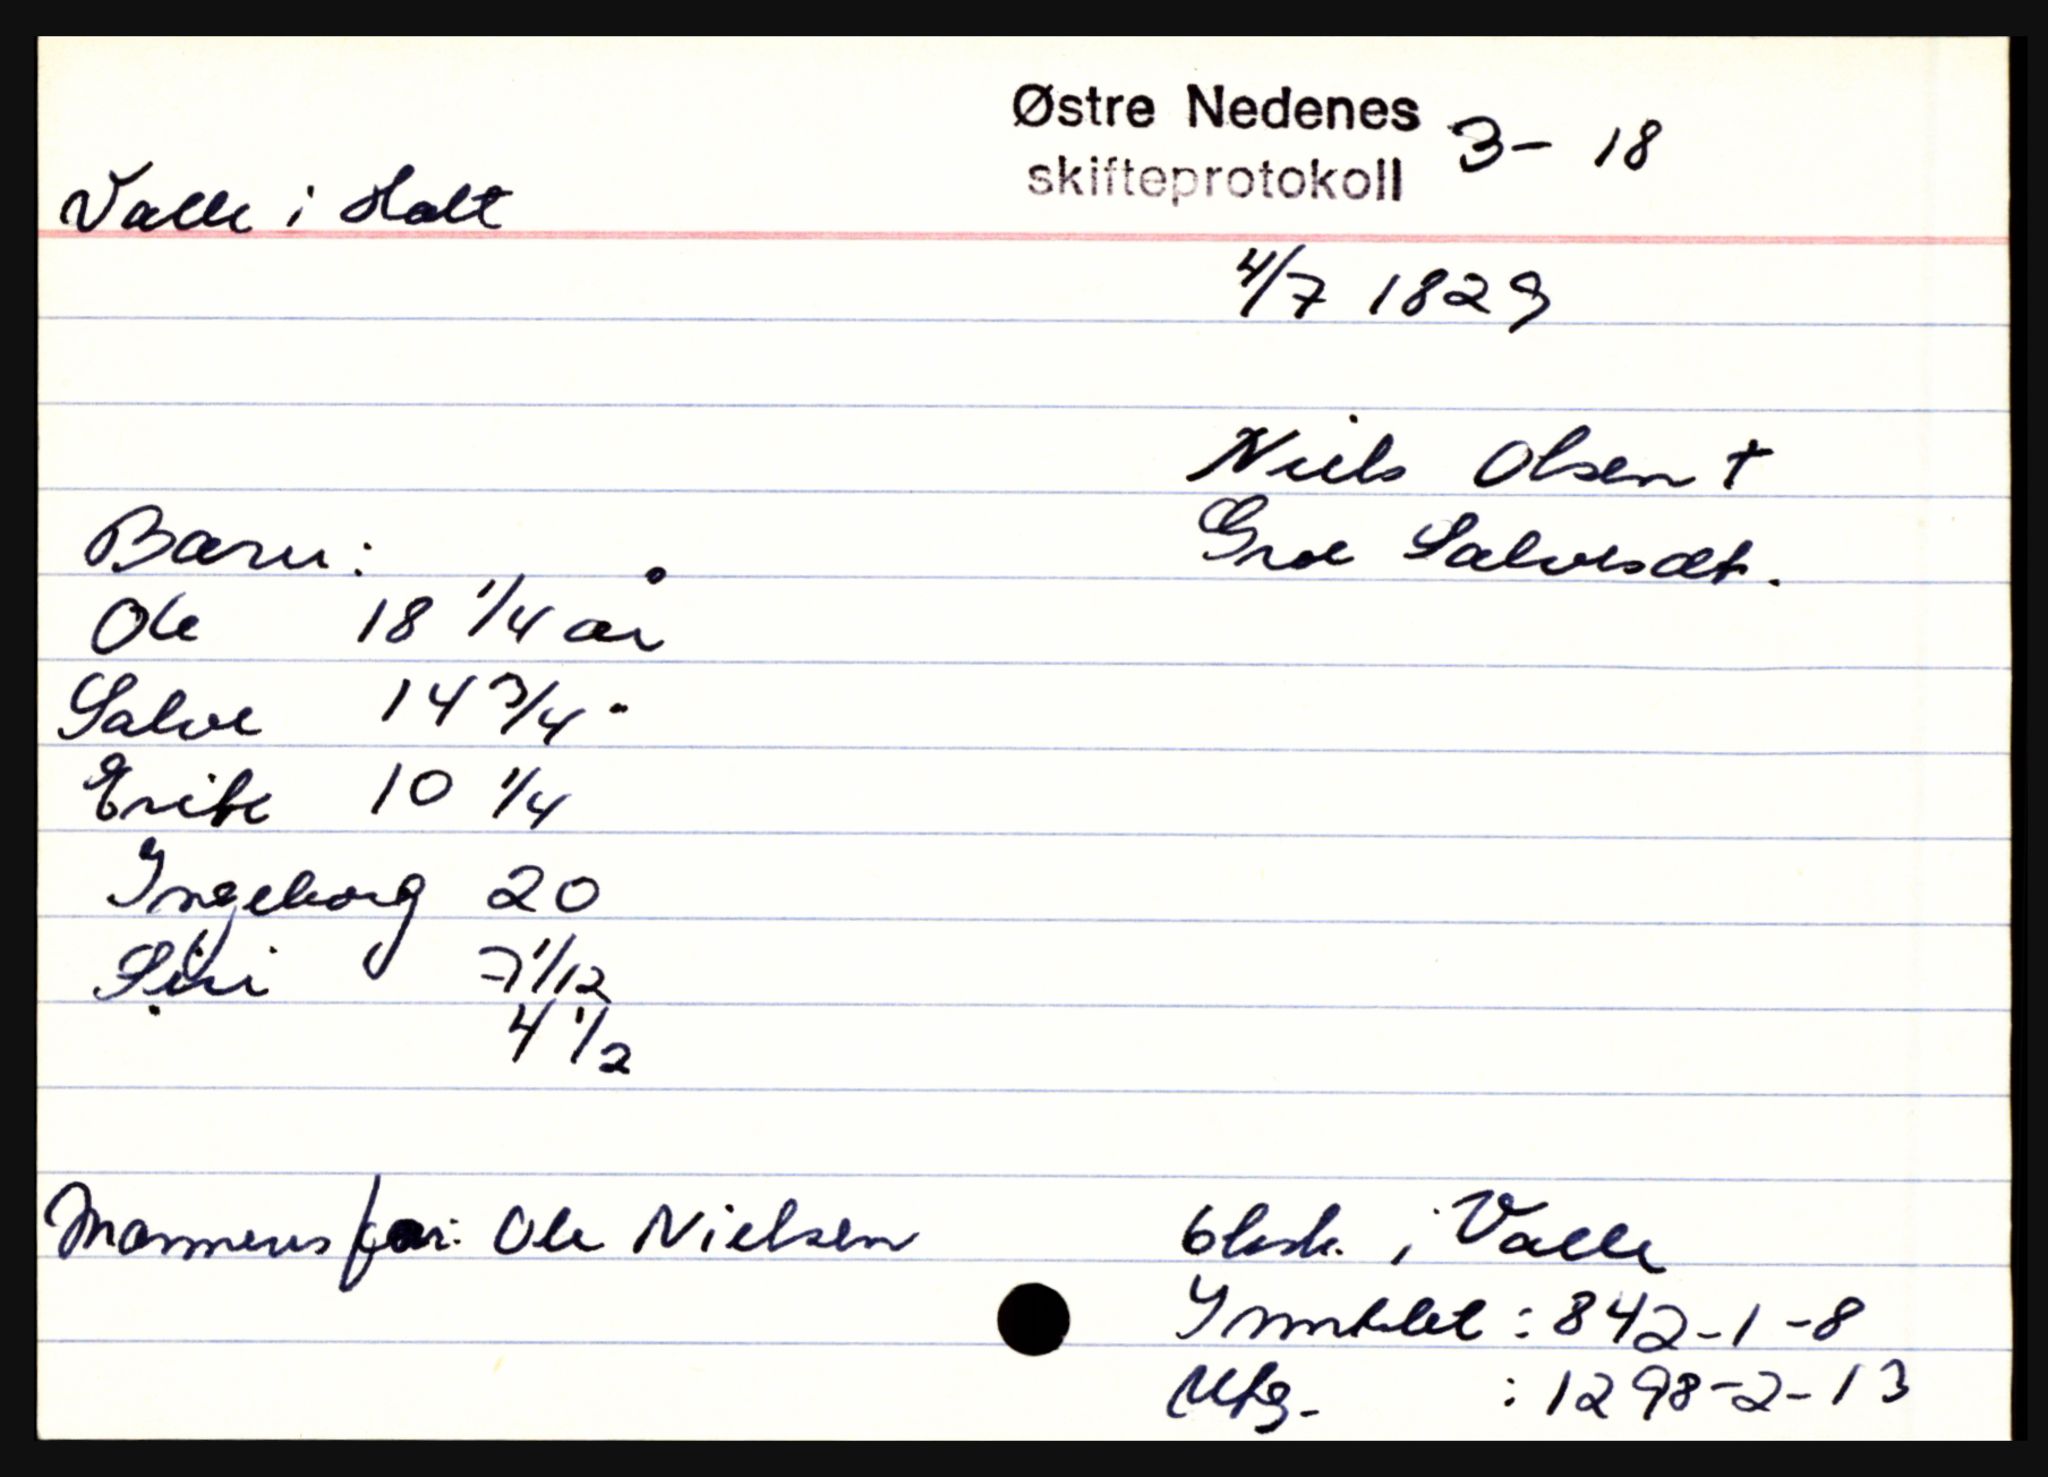 Østre Nedenes 3 - 18
skifteprotokoll
Valle i Holt
4/7 1829
Niels Olsen †
Groe Salvesdt.
Barn:
Ole 18 1/4 år
Salve 14 3/4 "
Erik 10 1/4
Ingeborg 20
Siri 7 1/12
4 1/2
Mannens far: Ole Nielsen
6 lisp. i Valle
Inntekt : 842-1-8
Utg. : 1298-2-13